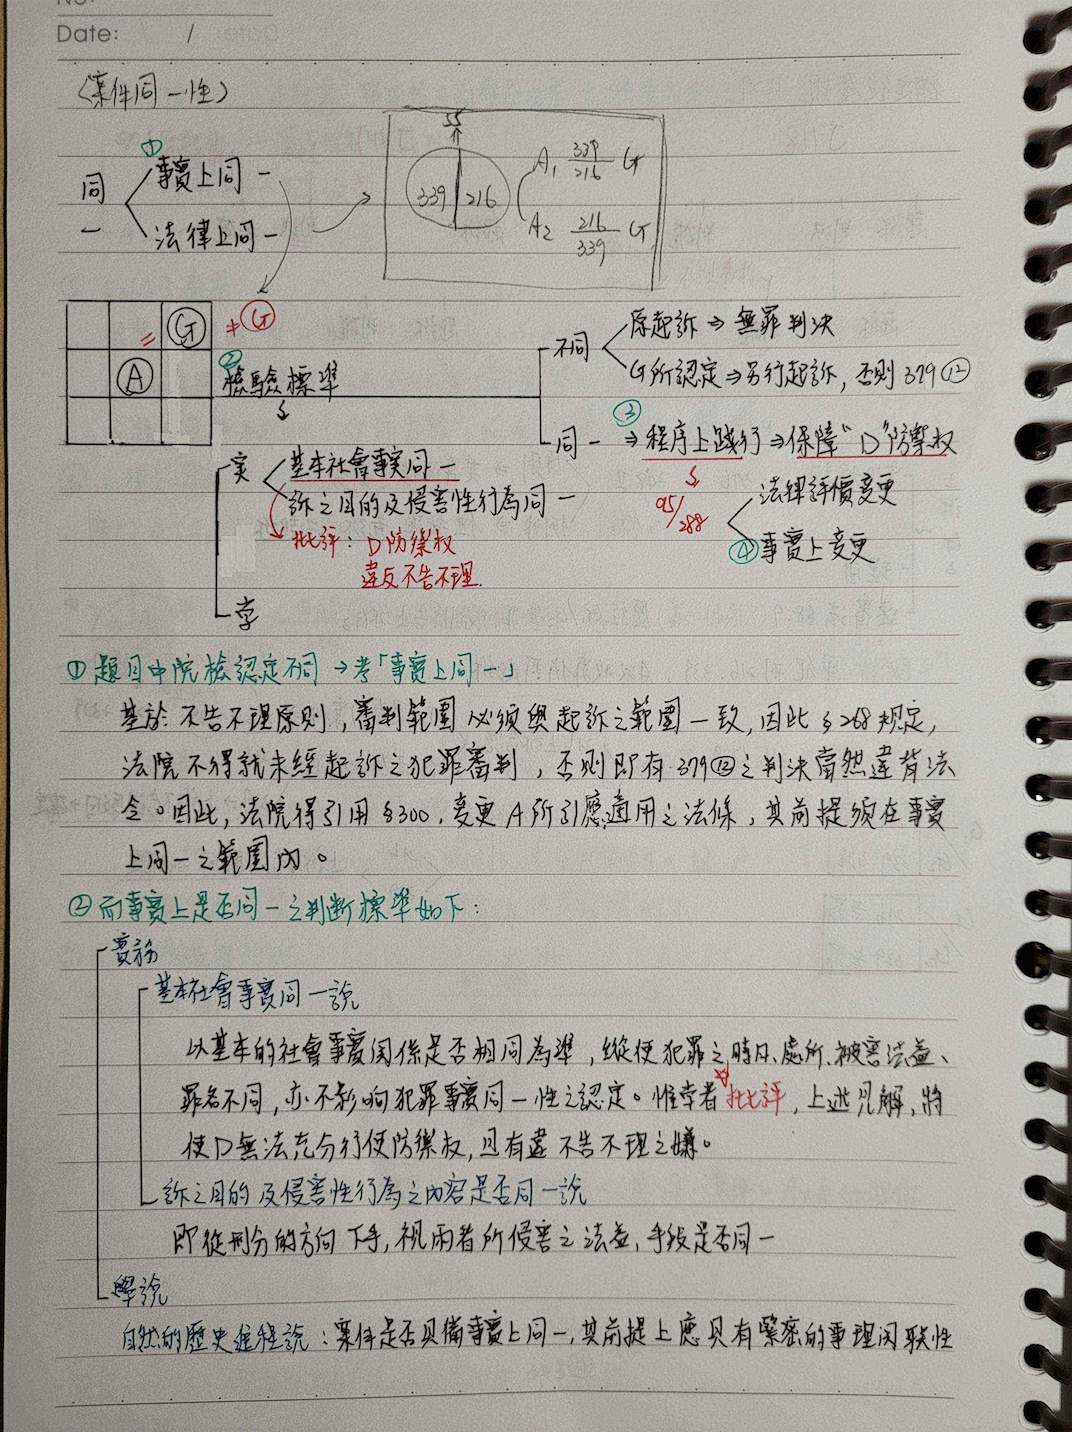 No:
Date: /
〈案件同一性〉
同一
①
事實上同一
法律上同一
55
339 216
A1 339/216 G
A2 216/339 G
G
= ≠ G
A
②
檢驗標準
不同
原起訴⇒無罪判決
G所認定⇒另行起訴，否則379⑫
同一
③
⇒程序上踐行⇒保障"D"防禦權
95/288
法律評價變更
④事實上變更
實
基本社會事實同一
訴之目的及侵害性行為同一
批評：D防禦權
違反不告不理.
學
①題目中院檢認定不同→考「事實上同一」
基於不告不理原則，審判範圍必須與起訴之範圍一致，因此§268規定，
法院不得就未經起訴之犯罪審判，否則即有379⑫之判決當然違背法
令。因此，法院得引用§300，變更A所引應適用之法條，其前提須在事實
上同一之範圍內。
②而事實上是否同一之判斷標準如下：
實務
基本社會事實同一說
以基本的社會事實關係是否相同為準，縱使犯罪之時日、處所、被害法益、
罪名不同，亦不影响犯罪事實同一性之認定。惟學者批評，上述見解，將
使D無法充分行使防禦權，且有違不告不理之嫌。
訴之目的及侵害性行為之內容是否同一說
即從刑分的方向下手，視兩者所侵害之法益，手段是否同一
學說
自然的歷史進程說：案件是否具備事實上同一，其前提上應具有緊密的事理関联性